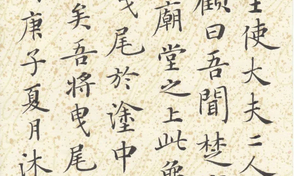 王使大夫二人
顧曰吾聞楚
廟堂之上此
尾於塗中
矣吾將曳尾
庚子夏月沐